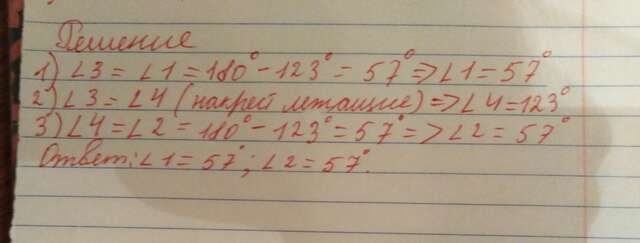 Решение
1) ∠3 = ∠1 = 180° - 123° = 57° => ∠1 = 57°
2) ∠3 = ∠4 (накрей лежащие) => ∠4 = 123°
3) ∠4 = ∠2 = 180° - 123° = 57° => ∠2 = 57°
Ответ: ∠1 = 57°; ∠2 = 57°.